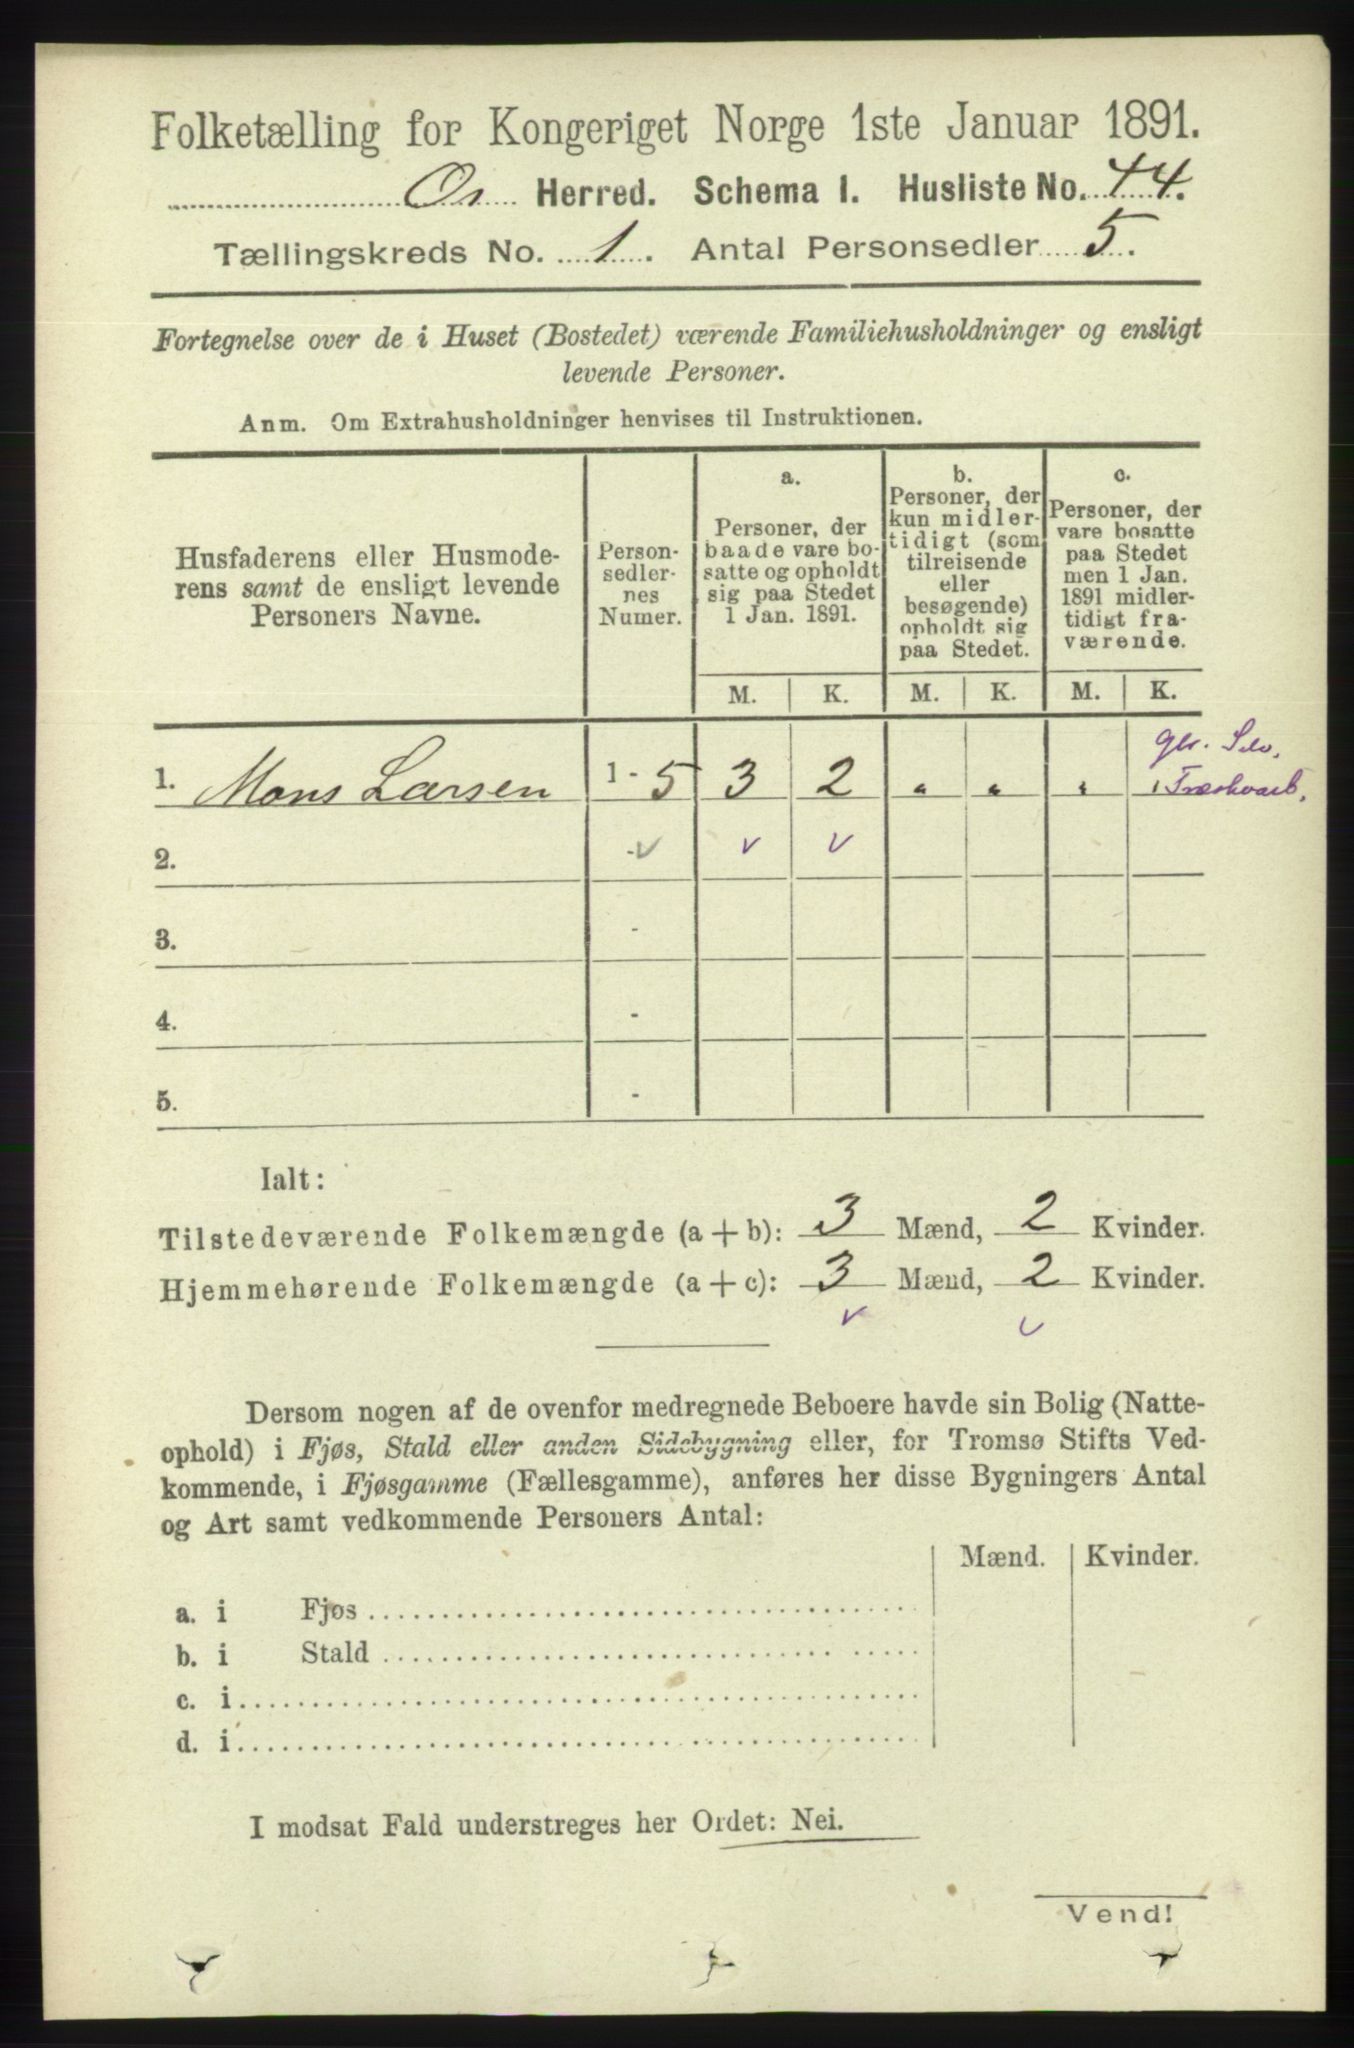 Folketælling for Kongeriget Norge 1ste Januar 1891.
Os Herred. Schema I. Husliste No. 44.
Tællingskreds No. 1. Antal Personsedler 5.
Fortegnelse over de i Huset (Bostedet) værende Familiehusholdninger og ensligt
levende Personer.
Anm. Om Extrahusholdninger henvises til Instruktionen.
Husfaderens eller Husmode-
rens samt de ensligt levende
Personers Navne.
Person-
sedler-
nes
Numer.
a.
Personer, der
baade vare bo-
satte og opholdt
sig paa Stedet
1 Jan. 1891.
b.
Personer, der
kun midler-
tidigt (som
tilreisende
eller
besøgende)
opholdt sig
paa Stedet.
c.
Personer, der
vare bosatte
paa Stedet
men 1 Jan.
1891 midler-
tidigt fra-
værende.
M. K. M. K. M. K.
1. Mons Larsen 1 - 5 3 2 " " " "
2. -
3. -
4. -
5. -
Ialt:
Tilstedeværende Folkemængde (a + b): 3 Mænd, 2 Kvinder.
Hjemmehørende Folkemængde (a + c): 3 Mænd, 2 Kvinder.
Dersom nogen af de ovenfor medregnede Beboere havde sin Bolig (Natte-
ophold) i Fjøs, Stald eller anden Sidebygning eller, for Tromsø Stifts Ved-
kommende, i Fjøsgamme (Fællesgamme), anføres her disse Bygningers Antal
og Art samt vedkommende Personers Antal:
Mænd. Kvinder.
a. i Fjøs
b. i Stald
c. i
d. i
I modsat Fald understreges her Ordet: Nei.
Vend!